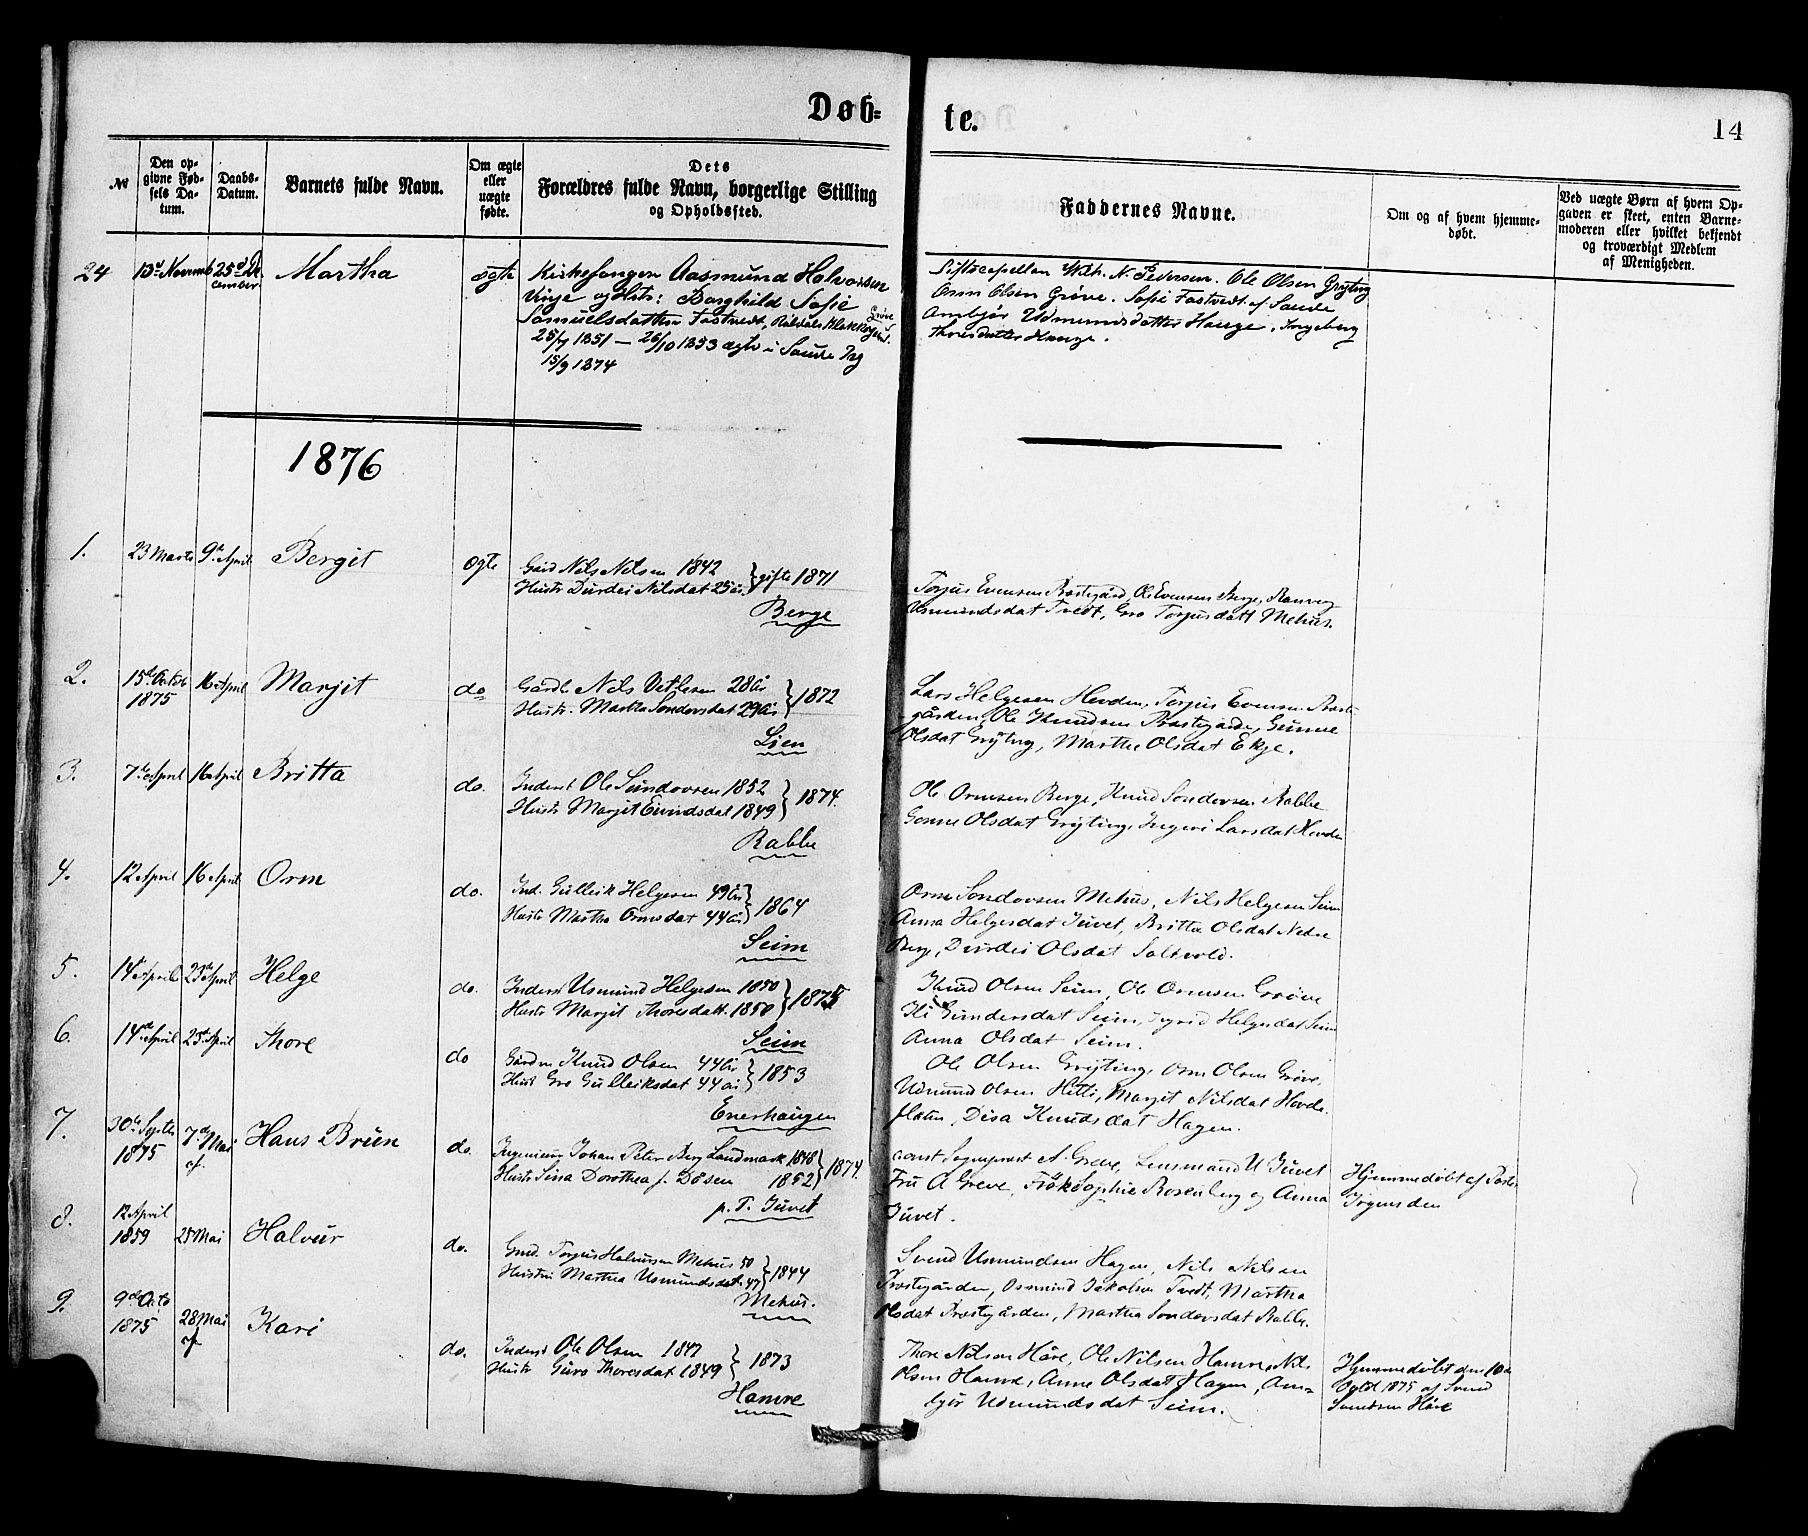 Døb-
te.
14
№
Den op-
givne Fød-
sels Da-
tum.
Daabs-
Datum.
Barnets fulde Navn.
Om ægte
eller
uægte
fødte.
Dets
Forældres fulde Navn, borgerlige Stilling
og Opholdssted.
Faddernes Navne.
Om og af hvem hjemme-
døbt.
Ved uægte Børn af hvem Op-
gaven er skeet, enten Barne-
moderen eller hvilket bekjendt
og troværdigt Medlem
af Menigheden.
24
25d De
cember
Martha
ægte
Kirkesanger Aasmund Halvorsen
Vinje og Hstr: Borghild Sofie
Samuelsdatter Fastvedt,
25/7 1851 — 26/10 1853 ægtv i Saude Pg
15/9 1874
Stiftscapellan Wilh. N. Pedersen. Ole Olsen Grøting
Orm Olsen Grøve. Sofie Fastvedt af Saude
Ambjør Udmundsdatter Hauge. Ingeborg
Thoresdatter Hauge.
1876
1.
23 Marts
9de April
Bergit
ægte
Gård Nils Nilsen 1842
Hustr Durdei Nilsdat 25 år
gifte 1871
Berge
Torjus Evensen Præstegård, Ole Evensen Berge, Ranveig
Usmundsdat Tvedt, Gro Torjusdatt Mehus.
2.
15de Octob
1875
16 April
Marjit
do
Gårdb Nils Vetlesen 28 år
Hustr. Martha Sondovsdat 29 år
1872
Lien
Lars Helgesen Hovden, Torjus Evensen Præste-
gården, Ole Knudsen Præstegården, Gunne
Olsdat Grøting, Marthe Olsdat Ekje.
3.
7de April
16 April
Britta
do.
Inderst Ole Sundovsen 1852
Hustr Marjit Eivindsdat 1849
1874.
Rabbe
Ole Ormsen Berge, Knud Sondovsen Rabbe
Gonne Olsdat Grøting, Ingeri Larsdat Hovden
4.
12 April
16 April
Orm
do.
Ind. Gulleik Helgesen 49 år
Hustr Martha Ormsdat 44 år
1864
Seim
Orm Sondovsen Mehus, Nils Helgesen Seim
Anna Helgesdat Juvet, Britta Olsdat Nedre
Berg, Durdei Olsdat Saltvold.
5.
14 April
23de April
Helge
do.
Inderst Usmund Helgesen 1850
Hustr Marjit Thoresdatt. 1850
1875
Seim
Knud Olsen Seim, Ole Ormsen Grøve
Gundersdat Seim, Sigrid Helgesdat Seim
Anna Olsdat Seim.
6.
14de April
23de April
Thore
do
Gårdm Knud Olsen 44 år
Hust Gro Gulleiksdat 44 år
1853
Enerhaugen
Ole Olsen Grøting, Orm Olsen Grøve,
Udmund Olsen Hetti, Marjit Nilsdat Hovde-
flåten, Disa Knudsdat Hagen.
7.
30de Septb
1875
7de Mai
cf.
Hans Brun
do.
Ingeniør Johan Peter Berg Landmark 1848
Hustr Sina Dorothea f. Dåsen 1852
1874.
p. T. Juvet
const Sogneprest A. Greve, Lensmand U Juvet
Fru A Greve, Frøk Sophie Rosenberg og Anna
Juvet.
Hjemmedøbt af
8.
12 April
1859
25 Mai
Halvur
do.
Gmd. Torjus Halvursen Mehus 50
Hustru Martha Usmundsdat. 47
1844
Mehus.
Svend Usmundsen Hagen, Nils Nilsen
Præstegården, Osmund Jakobsen Tvedt, Martha
Olsdat Præstegården, Martha Sondovsdat Rabbe.
9.
9de Octo
1875
28 Mai
cf
Kari
do.
Inderst Ole Olsen 1847
Hustr Guro Thoresdat 1849
1873
Hamre
Thore Nilsen Håve, Ole Nilsen Hamre, Nils
Olsen Hamre, Anne Olsdat Hagen, Am-
bjør Udmundsdat Seim.
Hjemmedøbt den 10de
1875 af Svend
Svendsen Håve